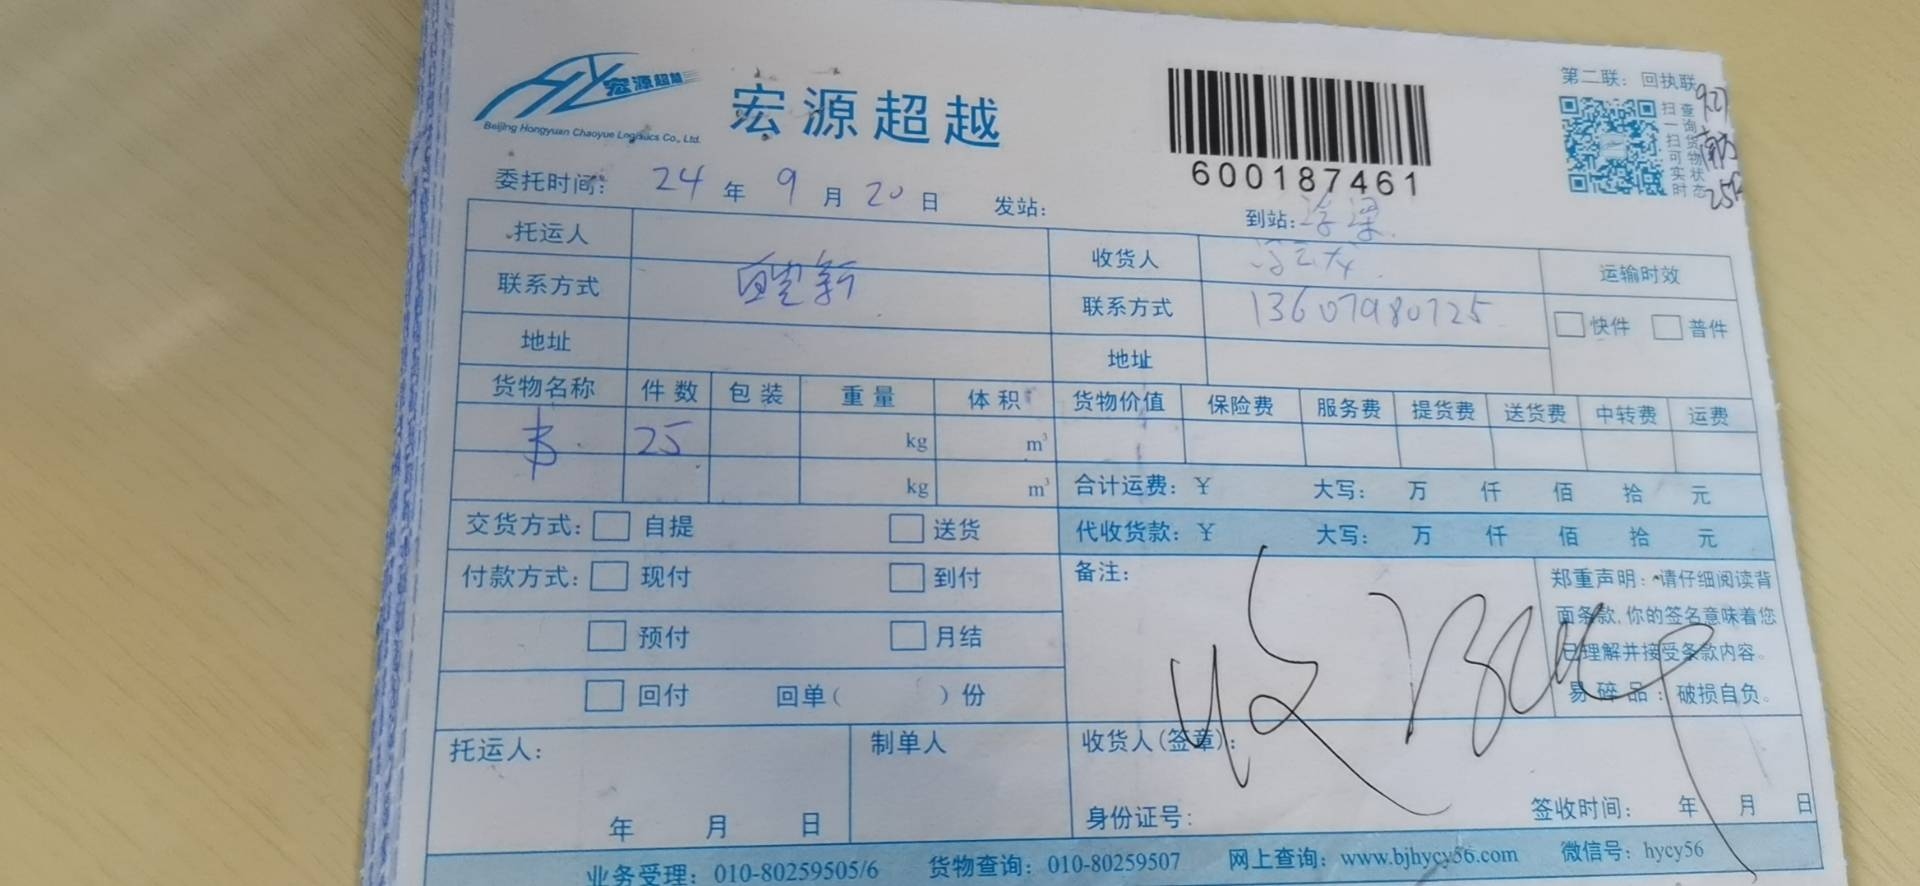 宏源超越
Beijing Hongyuan Chaoyue Logistics Co., Ltd.
宏源超越
600187461
第二联：回执联
扫一扫可实时
查询货物状态
9.27
委托时间： 24 年 9 月 20 日 发站： 到站：浮梁
托运人 收货人 运输时效
联系方式 联系方式 13607980725 快件 普件
地址 地址
货物名称 件数 包装 重量 体积 货物价值 保险费 服务费 提货费 送货费 中转费 运费
书 25 kg m³
kg m³ 合计运费：￥ 大写： 万 仟 佰 拾 元
交货方式： 自提 送货 代收货款：￥ 大写： 万 仟 佰 拾 元
付款方式： 现付 到付 备注：
预付 月结
回付 回单（ ）份
郑重声明：请仔细阅读背
面条款，你的签名意味着您
已理解并接受条款内容。
易碎品：破损自负。
收
托运人： 制单人 收货人（签章）：
年 月 日 身份证号： 签收时间： 年 月 日
业务受理：010-80259505/6 货物查询：010-80259507 网上查询：www.bjhycy56.com 微信号：hycy56